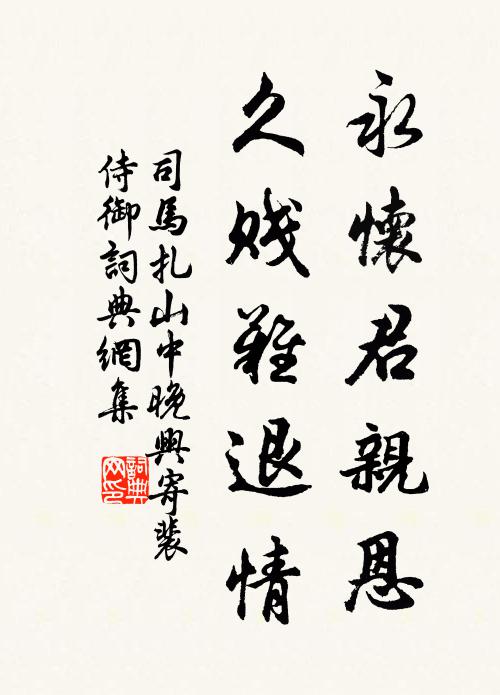 永懷君親恩
久賤難退情
司馬扎山中晚興寄裴
侍御詞典網集
詞典
网印